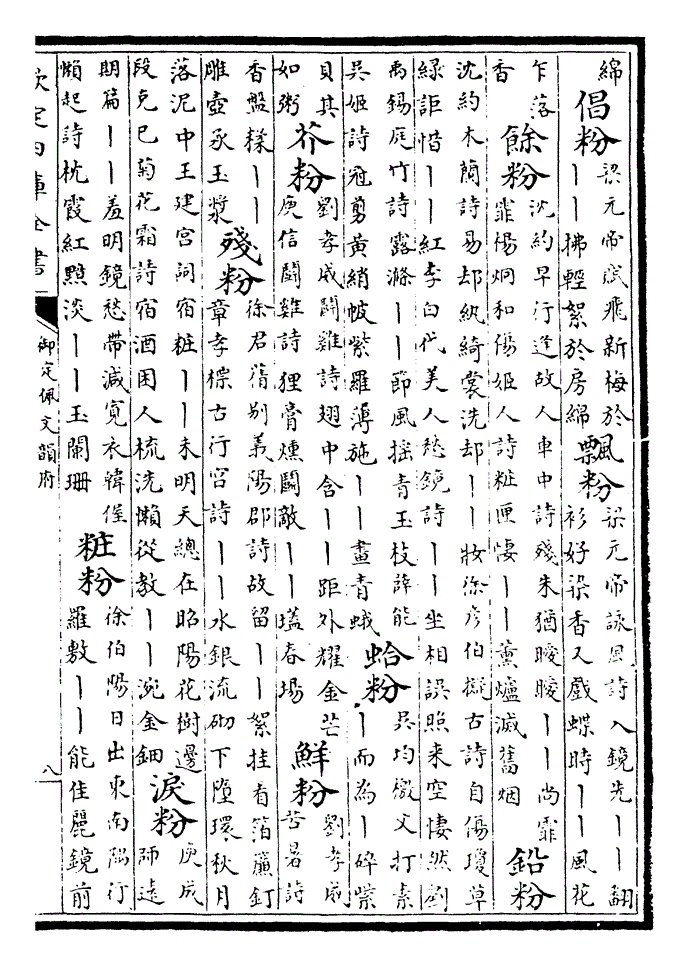 綿
倡粉
梁元帝賦飛新梅於
丨丨拂輕絮於房綿
飄粉
梁元帝詠風詩入鏡先丨丨翻
衫好染香又戲蝶時丨丨風花
乍落
香
餘粉
沈約早行逢故人車中詩殘朱猶曖曖丨丨尚霏
霏楊炯和傷姬人詩粧匣悽丨丨薰爐滅舊烟
鉛粉
沈約木蘭詩易却紈綺裳洗却丨丨妝徐彥伯擬古詩自傷瓊草
綠詎惜丨丨紅李白代美人愁鏡詩丨丨坐相誤照来空悽然劉
禹錫庭竹詩露滌丨丨節風摇青玉枝薛能
吳姬詩冠剪黄綃帔紫羅薄施丨丨畫青蛾
蛤粉
吳均檄文打素
丨而為丨碎紫
貝其
如粥
芥粉
劉孝威鬭雞詩翅中含丨丨距外耀金芒
庾信鬭雞詩狸膏燻鬭敵丨丨壒春場
鮮粉
劉孝威
苦暑詩
香盤糅丨丨
雕壺承玉漿
殘粉
徐君蒨别義陽郡詩故留丨丨絮挂看箔簾釘
章孝標古行宫詩丨丨水銀流砌下墮環秋月
落泥中王建宫詞宿粧丨丨未明天總在昭陽花樹邊
段克已菊花霜詩宿酒困人梳洗懶從教丨丨涴金鈿
淚粉
庾成
師遠
期篇丨丨羞明鏡愁帶減寛衣韓偓
懶起詩枕霞紅黯淡丨丨玉闌珊
粧粉
徐伯陽日出東南隅行
羅敷丨丨能佳麗鏡前
欽定四庫全書
御定佩文韻府
八